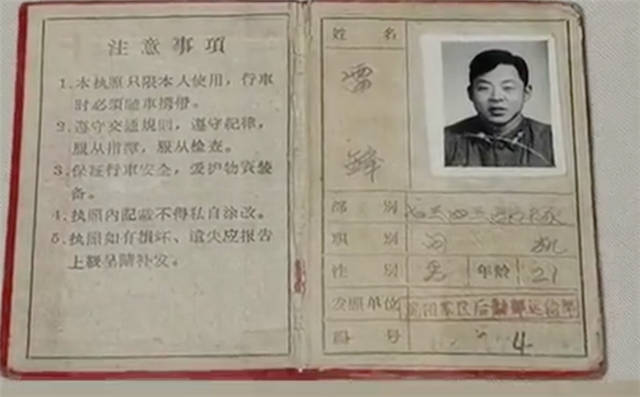 注意事項
1. 本执照只限本人使用，行車
时必须随車携带。
2. 遵守交通規則，遵守紀律，
服从指揮，服从檢查。
3. 保証行車安全，爱护物資装
备。
4. 执照內記載不得私自涂改。
5. 执照如有損坏、遺失应报告
上級呈請补发。
姓 名
雷
鋒
部 别
职 别 司 机
性 别 男 年龄 21
发照单位 沈阳軍区后勤部运输部
号 4